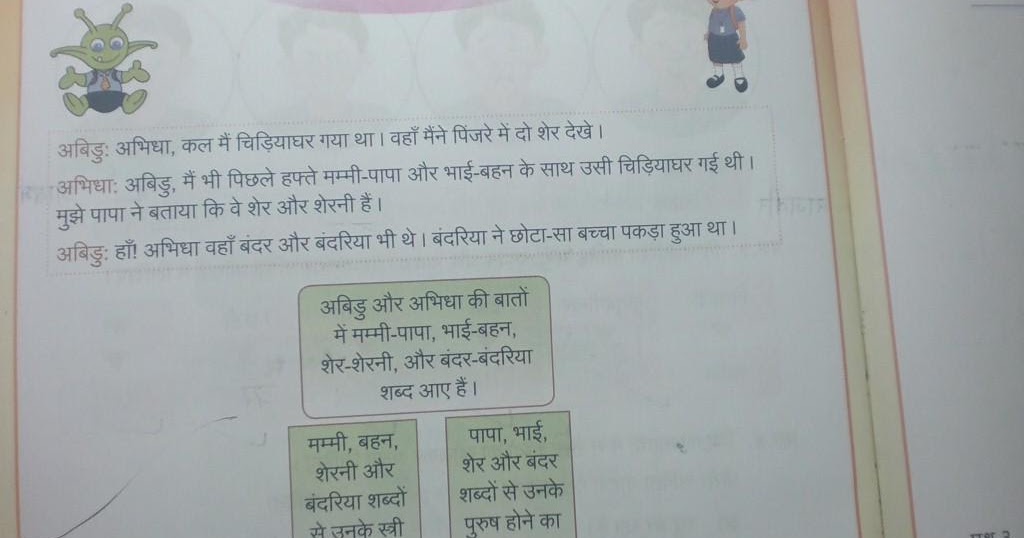 अबिडु: अभिधा, कल मैं चिड़ियाघर गया था। वहाँ मैंने पिंजरे में दो शेर देखे।
अभिधा: अबिडु, मैं भी पिछले हफ्ते मम्मी-पापा और भाई-बहन के साथ उसी चिड़ियाघर गई थी।
मुझे पापा ने बताया कि वे शेर और शेरनी हैं।
अबिडु: हाँ! अभिधा वहाँ बंदर और बंदरिया भी थे। बंदरिया ने छोटा-सा बच्चा पकड़ा हुआ था।
अबिडु और अभिधा की बातों
में मम्मी-पापा, भाई-बहन,
शेर-शेरनी, और बंदर-बंदरिया
शब्द आए हैं।
मम्मी, बहन,
शेरनी और
बंदरिया शब्दों
से उनके स्त्री
पापा, भाई,
शेर और बंदर
शब्दों से उनके
पुरुष होने का